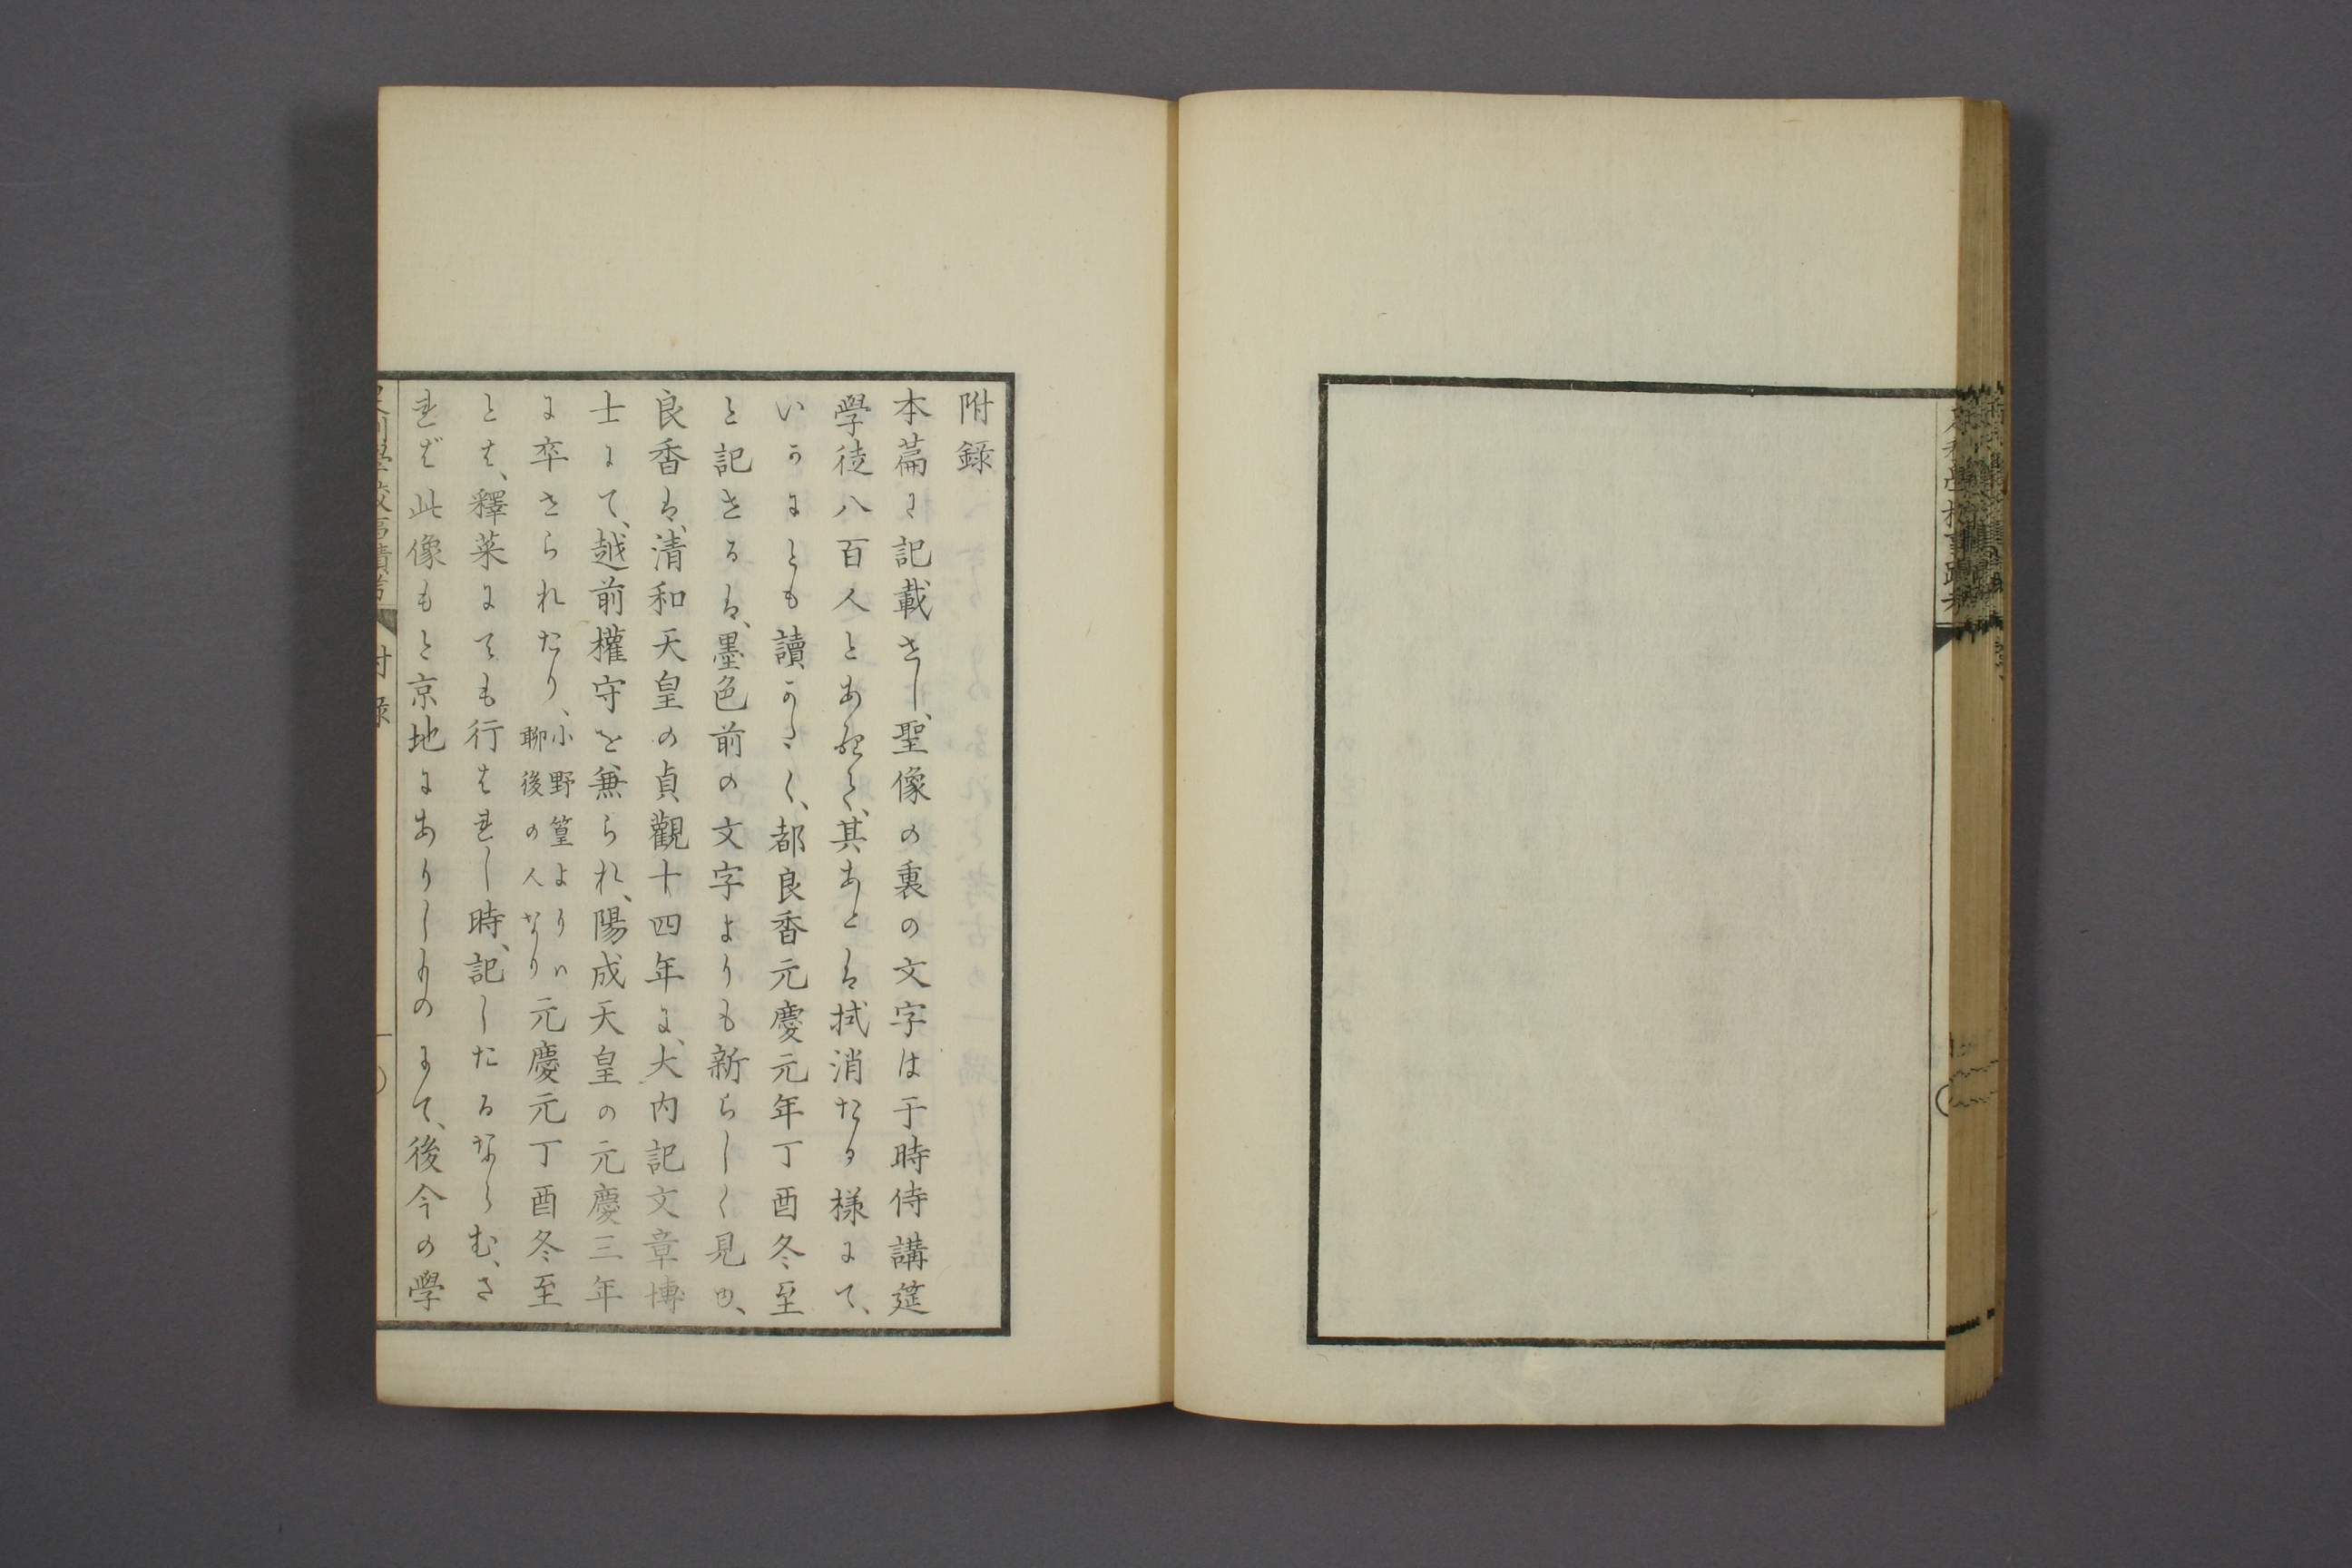 附錄
本篇に記載せし、聖像の裏の文字は于時侍講筵
學徒八百人とありて、其あとは拭消たる様にて、
いかにとも讀かたく、都良香元慶元年丁酉冬至
と記せるは、墨色前の文字よりも新らしく見ゆ、
良香は、清和天皇の貞觀十四年に、大内記文章博
士にて、越前權守を兼られ、陽成天皇の元慶三年
に卒せられたり、小野篁よりハ聊後の人なり元慶元丁酉冬至
とは、釋菜にても行はれし時、記したるならむ、さ
れば此像もと京地にありしものにて、後今の學
足利學校事蹟考 附錄 一
足利學校事蹟考